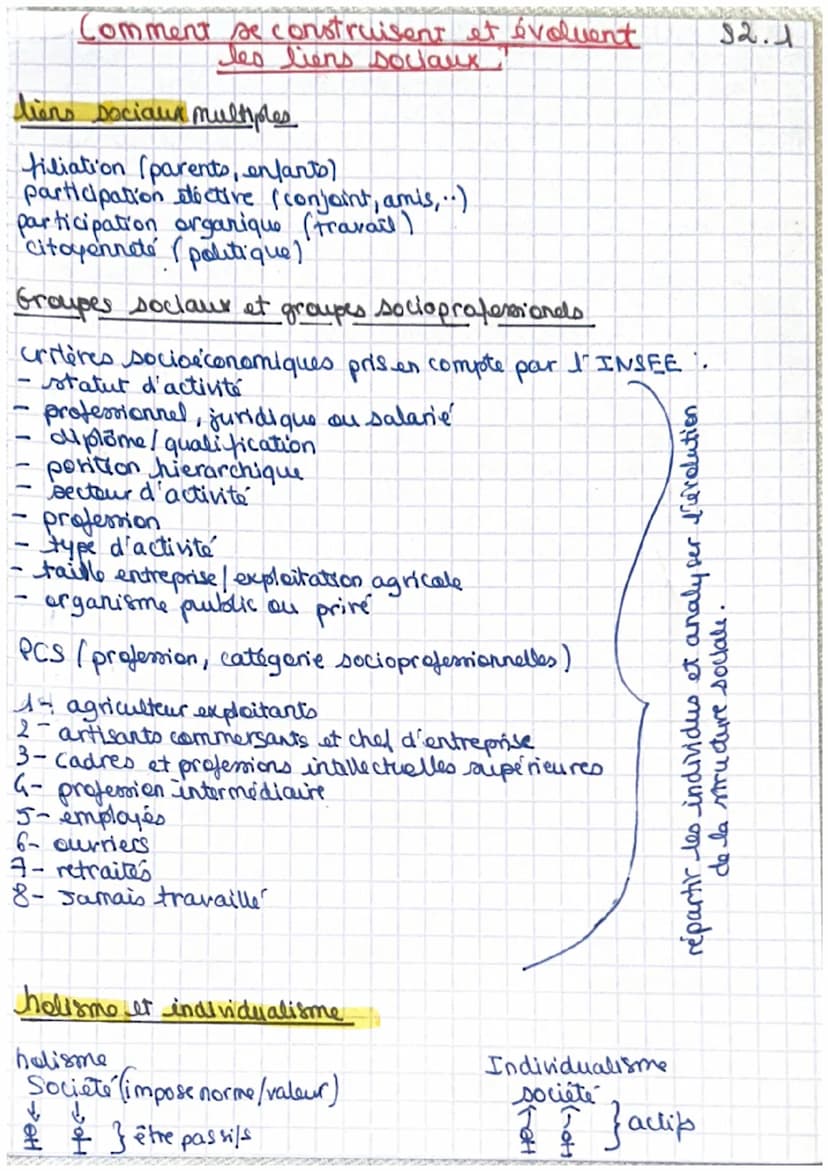 Comment se construisent et évoluent S2.1
les liens sociaux ?
liens sociaux multiples
filiation (parents, enfants)
participation élective (conjoint, amis, ..)
participation organique (travail)
citoyenneté (politique)
Groupes sociaux et groupes socioprofessionels
critères socioéconomiques pris en compte par l'INSEE :
- statut d'activité
- professionnel, juridique ou salarié
- diplôme / qualification
- position hierarchique
- secteur d'activité
- profession
- type d'activité
- taille entreprise / exploitation agricole
- organisme public ou privé
répartir les individus et analyser l'évolution
de la structure sociale.
PCS (profession, catégorie socioprofessionnelles)
1- agriculteur exploitants
2- artisants commersants et chef d'entreprise
3- cadres et professions intellectuelles supérieures
4- profession intermédiaire
5- employés
6- ouvriers
7- retraités
8- Jamais travaillé
holisme et individualisme
holisme
Société (impose norme/valeur)
} être passifs
Individualisme
société
} actifs